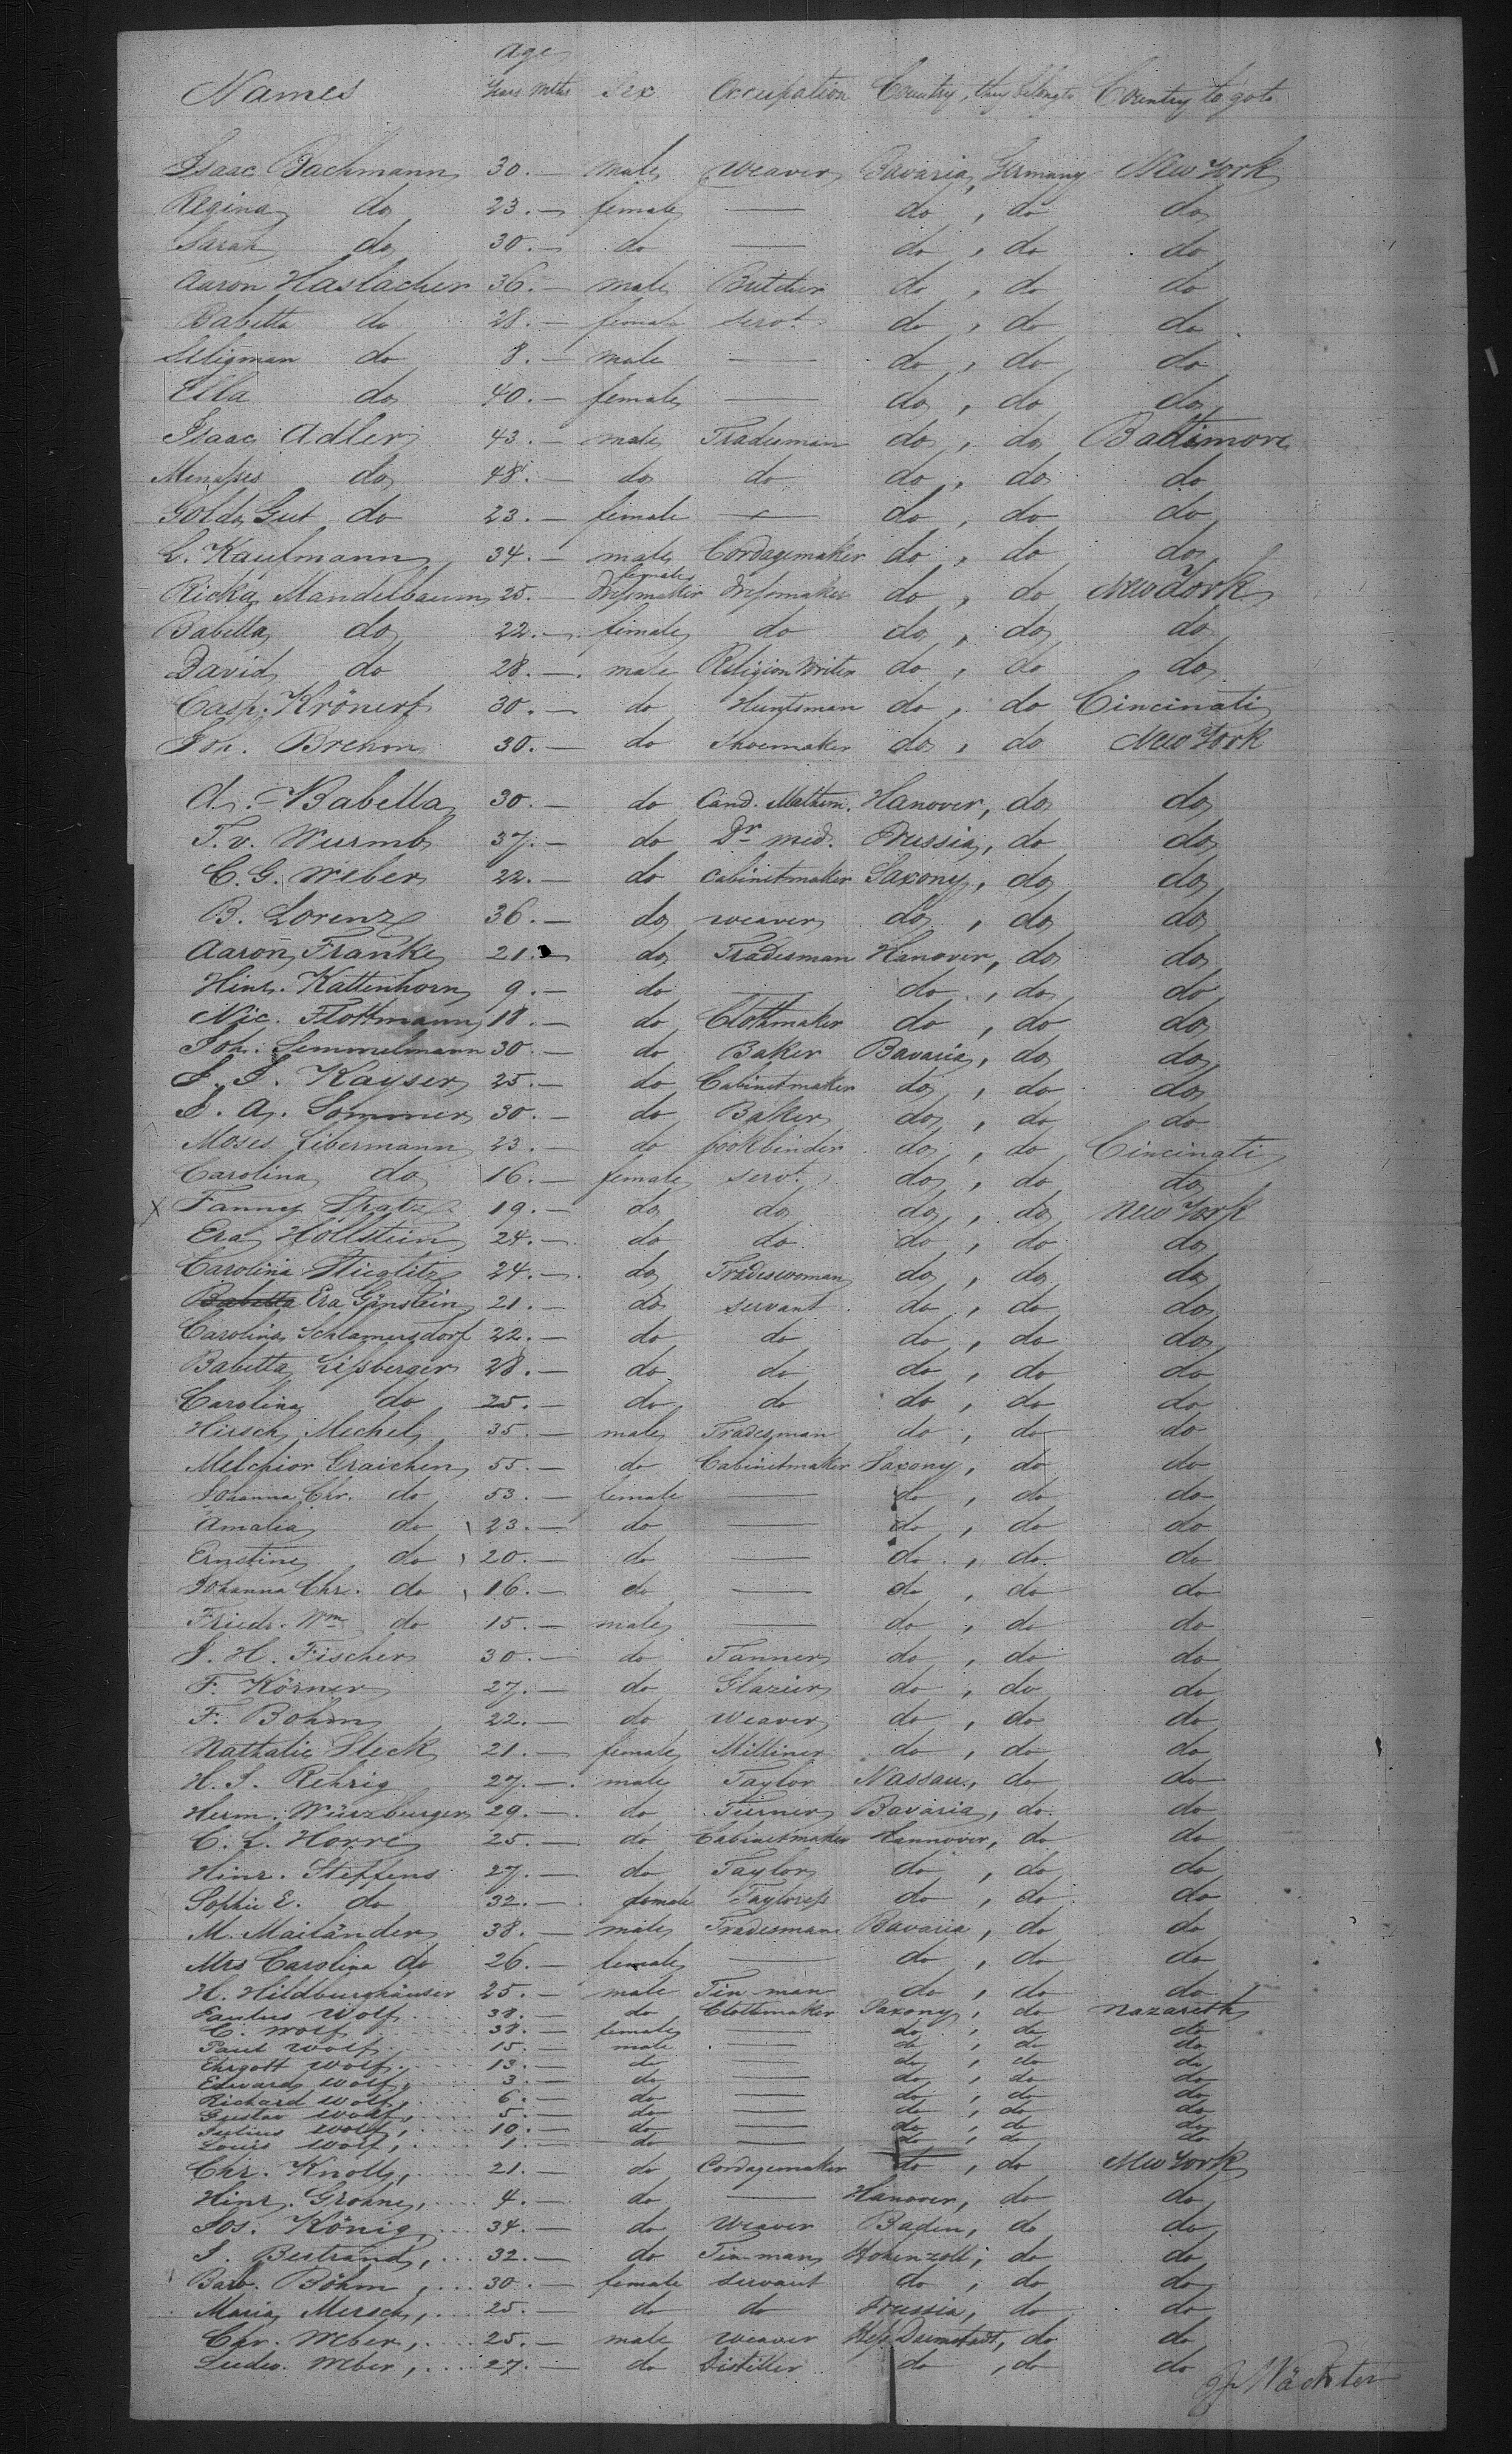 Names Age Years Mths Sex Occupation Country, they belong to Country to go to
Isaac Bachmann 30. — male Weaver Bavaria, Germany New York
Regina do 23. — female — do , do do
Sarah do 30. — do — do , do do
Aaron Haslacher 36. — male Butcher do , do do
Babetta do 28. — female servt. do , do do
Seligman do 8. — male — do , do do
Ella do 40. — female — do , do do
Isaac Adler 43. — male Tradesman do , do Baltimore
Menasses do 48. — do do do , do do
Golda Gut do 23. — female — do , do do
L. Kaufmann 34. — male Cordagemaker do , do do
Ricka Mandelbaum 25. — Dressmaker female Dressmaker do , do New York
Babetta do 22. — female do do , do do
David do 28. — male Religion Writer do , do do
Casp. Krönert 30. — do Huntsman do , do Cincinati
Joh. Brehm 30. — do Shoemaker do , do New York
A. Babella 30. — do Cand. Mathem. Hanover, do do
T. v. Wurmb 37. — do Dr. med. Prussia, do do
C. G. Weber 22. — do Cabinetmaker Saxony, do do
B. Lorenz 36. — do weaver do , do do
Aaron Franke 21. — do Tradesman Hanover, do do
Hinr. Kattenhorn 9. — do — do , do do
Nic. Flottmann 18. — do Clothmaker do , do do
Joh. Semmelmann 30. — do Baker Bavaria, do do
J. J. Kayser 25. — do Cabinetmaker do , do do
J. A. Sommer 30. — do Baker do , do do
Moses Libermann 23. — do bookbinder do , do Cincinati
Carolina do 16. — female servt. do , do do
X Fanny Spatz 19. — do do do , do New York
Eva Höllstein 24. — do do do , do do
Carolina Stieglitz 24. — do Tradeswoman do , do do
Babetta Eva Gönstein 21. — do servant do , do do
Carolina Schlamersdorf 22. — do do do , do do
Babetta Lissberger 28. — do do do , do do
Carolina do 25. — do do do , do do
Hirsch Mechel 35. — male Tradesman do , do do
Melchior Graichen 55. — do Cabinetmaker Saxony, do do
Johanna Chr. do 53. — female — do , do do
Amalia do 23. — do — do , do do
Ernstine do 20. — do — do , do do
Johanna Chr. do 16. — do — do , do do
Friedr. Wm do 15. — male — do , do do
J. H. Fischer 30. — do Tanner do , do do
F. Körner 27. — do Glazier do , do do
F. Bohm 22. — do Weaver do , do do
Nathalie Steck 21. — female Milliner do , do do
H. J. Rehrig 27. — male Taylor Nassau, do do
Herm. Würzburger 29. — do Turner Bavaria, do do
C. L. Horre 25. — do Cabinetmaker Hannover, do do
Hinr. Steffens 27. — do Taylor do , do do
Sophie E. do 32. — female Tayloress do , do do
M. Mailänder 38. — male Tradesman Bavaria, do do
Mrs Carolina do 26. — female — do , do do
H. Hildburghäuser 25. — male Tin-man do , do do
Paulus Wolf 38. — do Clothmaker Saxony, do Nazareth
C. Wolf 38. — female — do , do do
Paul Wolf 15. — male — do , do do
Ehrgott Wolf 13. — do — do , do do
Edward Wolf 3. — do — do , do do
Richard Wolf 6. — do — do , do do
Gustav Wolf 5. — do — do , do do
Julius Wolf 10. — do — do , do do
Louis Wolf 1. — do — do , do do
Chr. Knoll 21. — do Cordagemaker do , do New York
Hinr. Grohne 4. — do — Hanover, do do
Jos. König 34. — do Weaver Baden, do do
J. Bestrand 32. — do Tin-man Hohenzoll; do do
Barb. Böhm 30. — female servant do , do do
Maria Mersch 25. — do do Prussia, do do
Chr. Weber 25. — male weaver Hess. Darmstadt, do do
Ludw. Weber 27. — do Distiller do , do do
Wächter